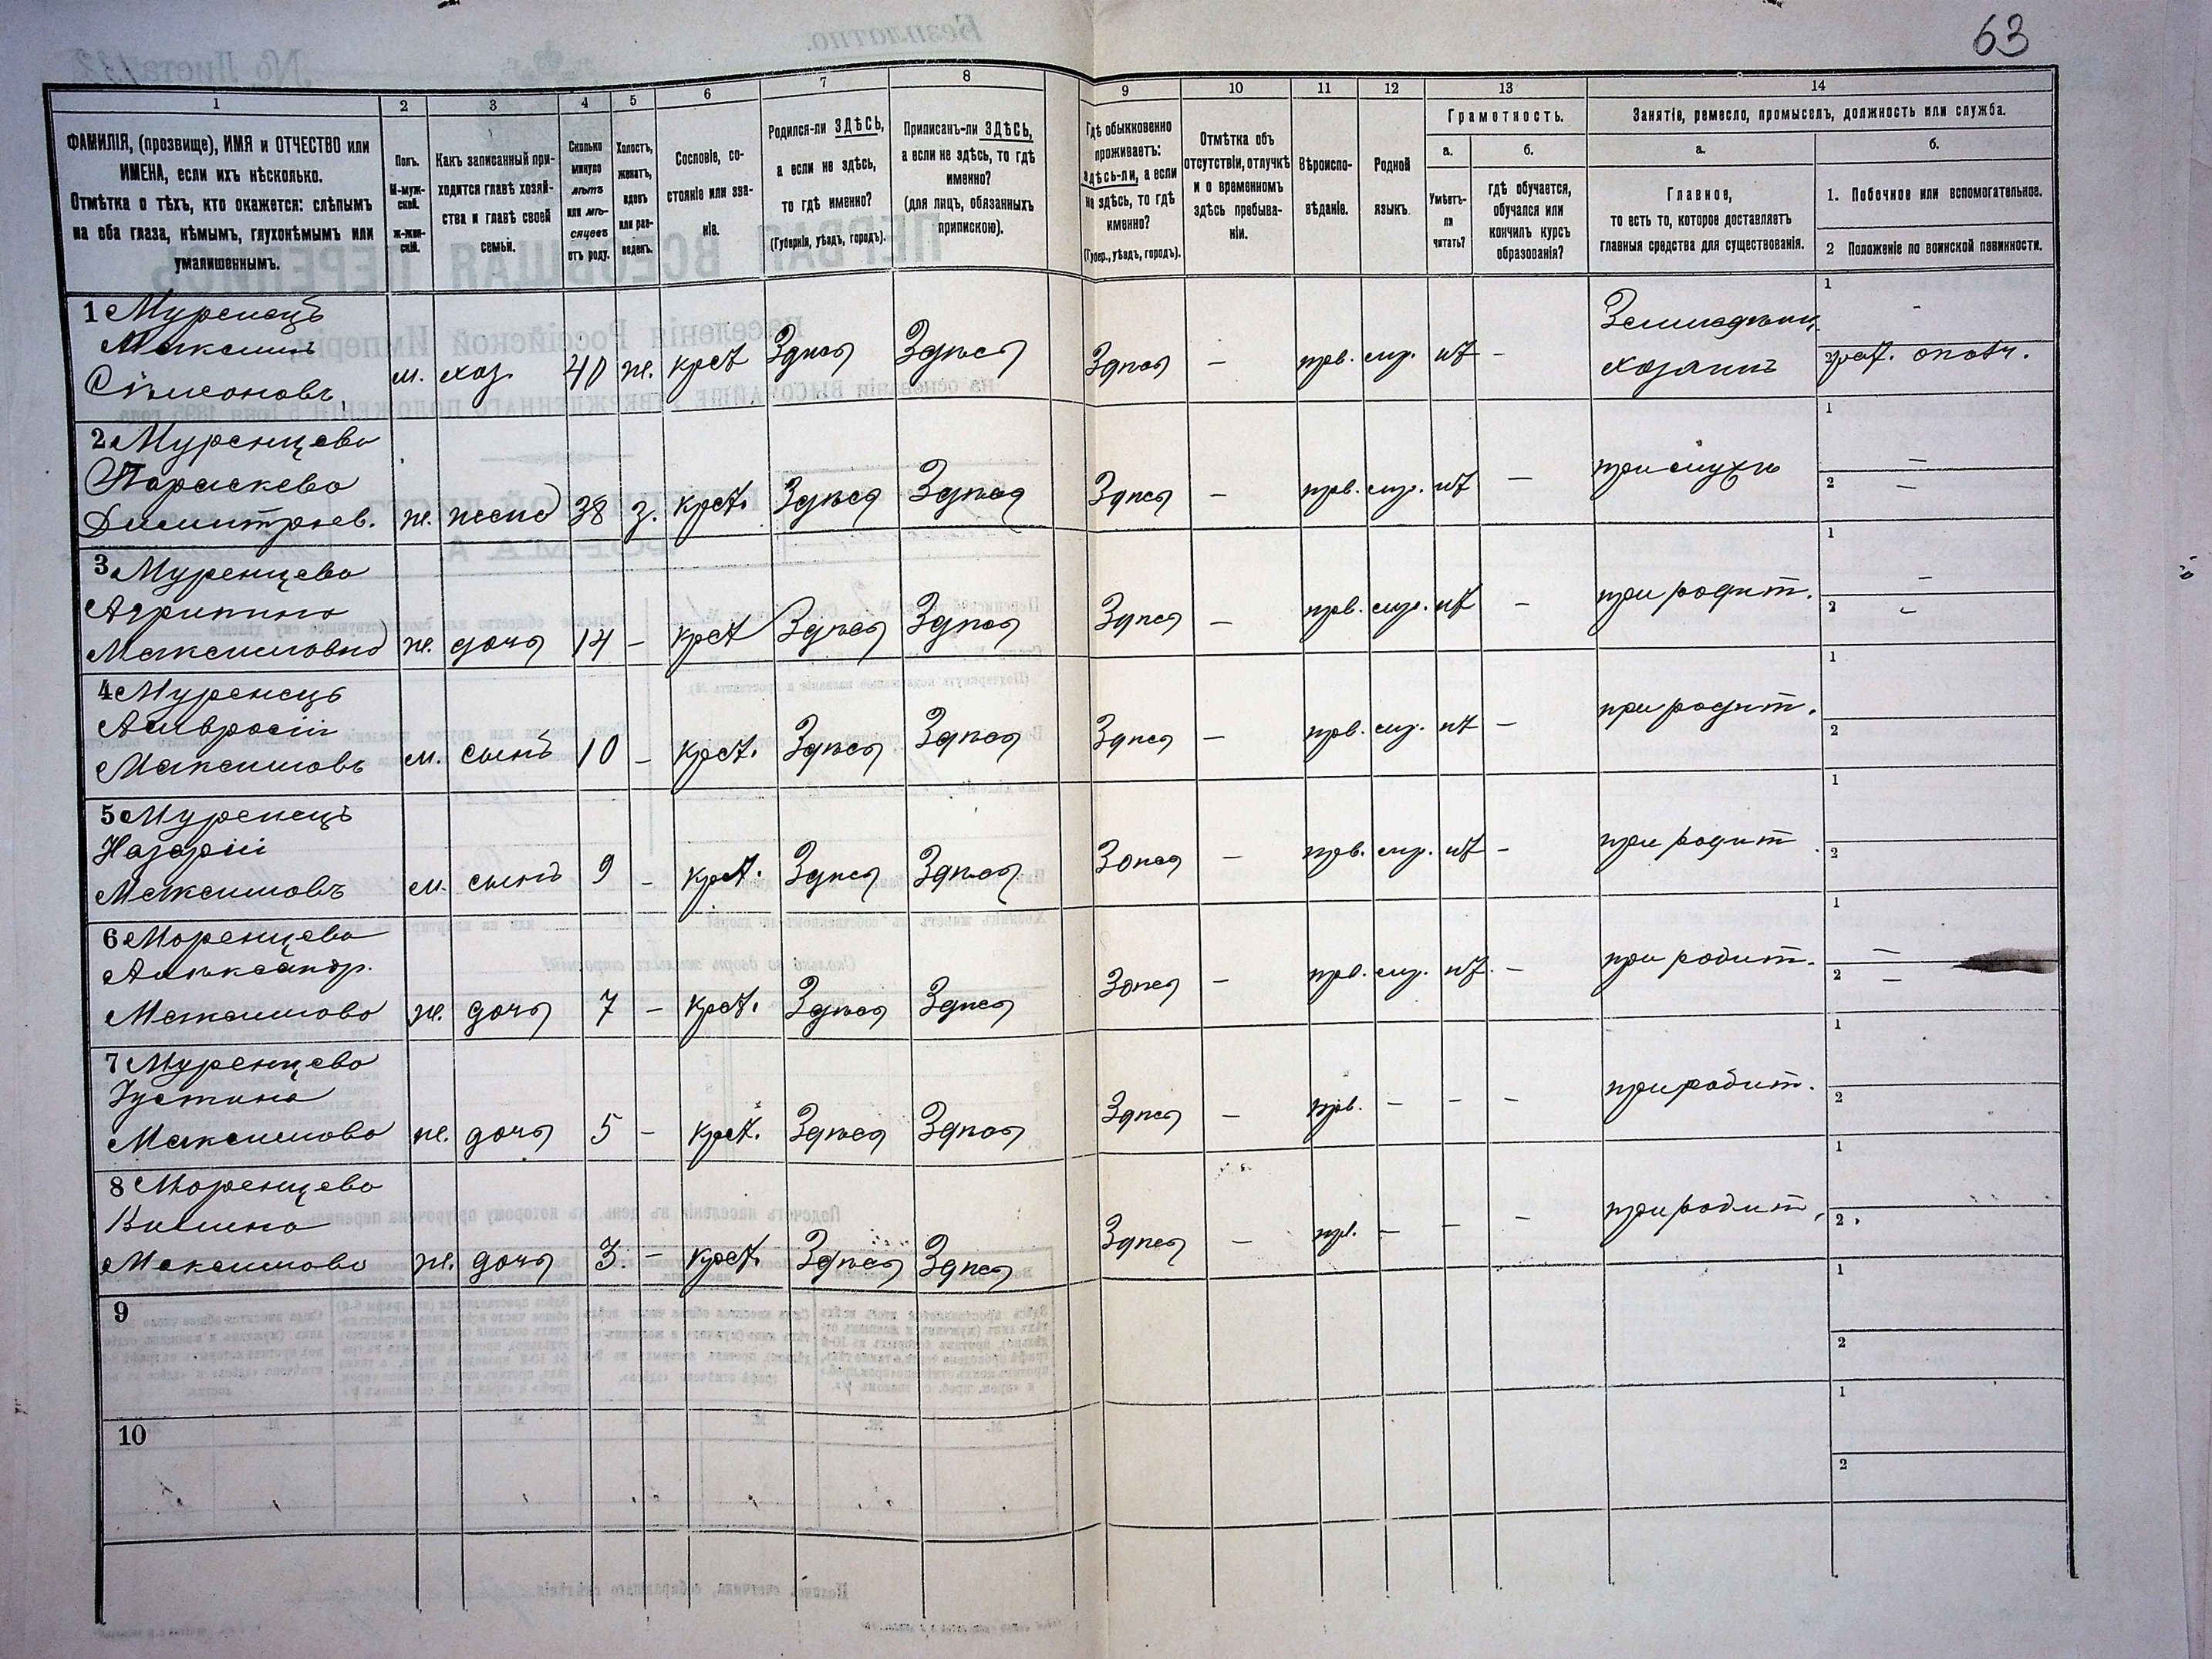 63
1 2 3 4 5 6 7 8 9 10 11 12 13 14
ФАМИЛІЯ, (прозвище), ИМЯ и ОТЧЕСТВО или
ИМЕНА, если ихъ нѣсколько.
Отмѣтка о тѣхъ, кто окажется: слѣпымъ
на оба глаза, нѣмымъ, глухонѣмымъ или
умалишеннымъ.
Полъ.
М-муж-
ской.
Ж-жен-
скій.
Какъ записанный при-
ходится главѣ хозяй-
ства и главѣ своей
семьи.
Сколько
минуло
лѣтъ
или мѣ-
сяцевъ
отъ роду.
Холостъ,
женатъ,
вдовъ
или раз-
веденъ.
Сословіе, со-
стояніе или зва-
ніе.
Родился-ли ЗДѢСЬ,
а если не здѣсь,
то гдѣ именно?
(Губернія, уѣздъ, городъ).
Приписанъ-ли ЗДѢСЬ,
а если не здѣсь, то гдѣ
именно?
(для лицъ, обязанныхъ
припискою).
Гдѣ обыкновенно
проживаетъ:
здѣсь-ли, а если
не здѣсь, то гдѣ
именно?
(Губер., уѣздъ, городъ).
Отмѣтка объ
отсутствіи, отлучкѣ
и о временномъ
здѣсь пребыва-
ніи.
Вѣроиспо-
вѣданіе.
Родной
языкъ.
Грамотность.
а.
Умѣетъ-
ли
читать?
б.
гдѣ обучается,
обучался или
кончилъ курсъ
образованія?
Занятіе, ремесло, промыселъ, должность или служба.
а.
Главное,
то есть то, которое доставляетъ
главныя средства для существованія.
б.
1. Побочное или вспомогательное.
2 Положеніе по воинской повинности.
1 Муренецъ
Максимъ
Симеоновъ
м. хоз. 40 ж. крест Здѣсь Здѣсь Здѣсь – прв. мр. нѣт –
хозяинъ
1 -
2 рат. опотч.
2 Муренцева
Параскева
Димитріев.
ж. жена 38 з. крест. Здѣсь Здѣсь Здѣсь – прв. мр. нѣт –
при мужѣ
1 –
2 –
3 Муренцева
Агрипина
Максимовна
ж. дочь 14 – крест Здѣсь Здѣсь Здѣсь – прв. мр. нѣт –
при родит.
1 –
2 –
4 Муренецъ
Амвросій
Максимовъ
м. сынъ 10 – крест. Здѣсь Здѣсь Здѣсь – прв. мр. нѣт –
при родит.
1
2
5 Муренецъ
Назарій
Максимовъ
м. сынъ 9 – крест. Здѣсь Здѣсь Здѣсь – прв. мр. нѣт –
при родит
1
2
6 Моренцева
Алѣксандр.
Максимова
ж. дочь 7 – крест. Здѣсь Здѣсь Здѣсь – прв. мр. нѣт. –
при родит.
1 –
2 –
7 Муренцева
Іустина
Максимова
ж. дочь 5 – крест. Здѣсь Здѣсь Здѣсь – прв. – – –
при родит.
1
2
8 Моренцева
Максимова
ж. дочь 3. – крест. Здѣсь Здѣсь Здѣсь – пр. – – –
при родит.
1
2
9
1
2
10
1
2